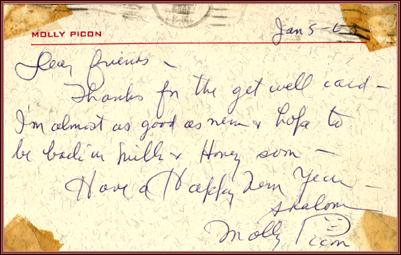 MOLLY PICON
Jan 5-6
Dear friends -
Thanks for the get well card -
I'm almost as good as new & hope to
be back in Milk & Honey soon -
Have a Happy New Year -
Shalom
Molly Picon